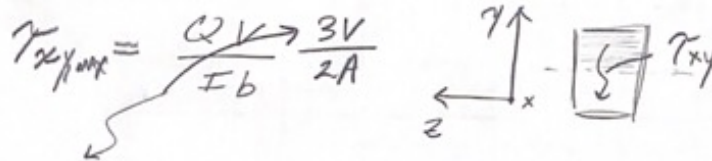 τxy max = QV / Ib → 3V / 2A
y
z
x
τxy